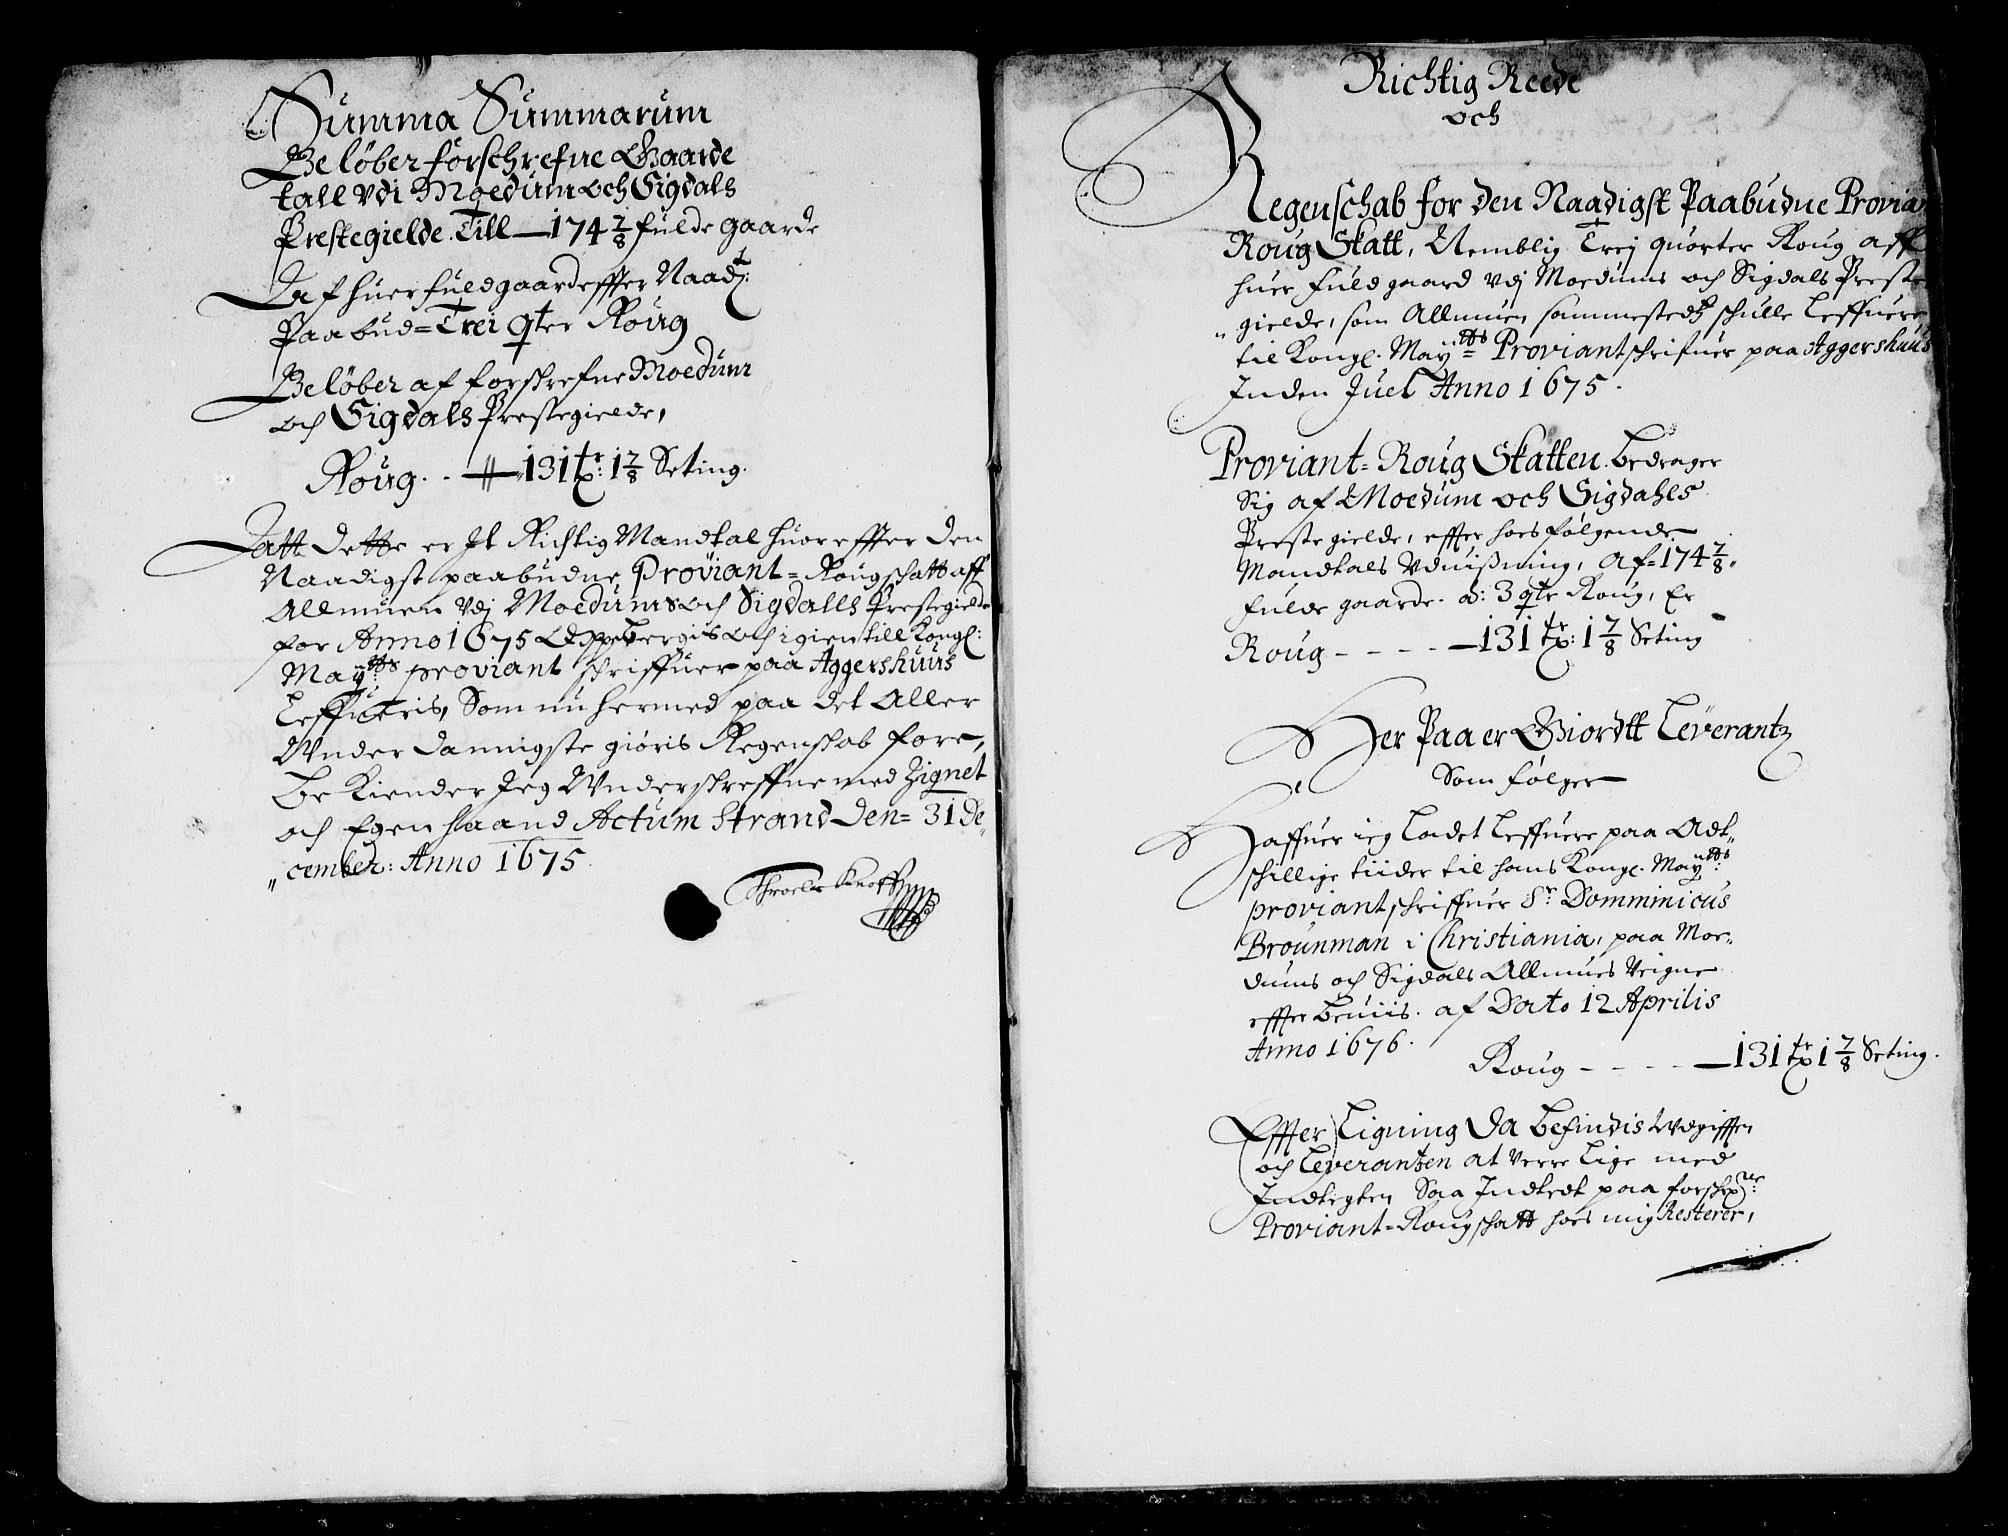 Summa Summarum
Beløber förschrefne Gaarde
tall Vdi Moedum och Sigdals
Prestegielde. Till — 174 7/8 fulde gaarde
Af huer fuldgaard effter Naadt:
Paabud = Trei qter Roug
Beløber af forskrefne Moedum
och Sigdals Prestegielde,
Roug. . — 131 tr: 1 7/8 Seting.
Att dette er It Richtig Mandtal huor effter den
Naadigst paabudne Proviant = Rougschatt aff
Allmuen Vdj Moedums och Sigdalls Prestegielde
for Anno 1675 Oppebergis och igien till Kongl:
May:tts proviant schriffuer paa Aggershuus
Leffueris, Som nu hermed paa det Aller
Vnder dannigste giøris Regenskab fore,
Be Kiender Jeg Vnderskreffne med Zignet
och Egen haand Actum Strand den = 31 De„
„cember: Anno 1675
Throels Knoff
Richtig Reede
och
Regenschab for den Naadigst Paabudne Provian
Roug Skatt, Nemblig Trej quorter Roug aff
huer fuld gaard Vdj Moedums och Sigdals Preste
„gielde, som Allmuen sammestedtz schulle Leffuere
til Kongl. May:tts = Proviantschrifuer paa Aggershuus
Inden Juel Anno 1675.
Proviant = Roug Skatten. bedrager
Sig af Moedum och Sigdahls
Preste gielde, effter hoesfølgende
Mandtals Vduißning, Af = 174 7/8.
fulde gaarde. a: 3 qte Roug, Er
Roug - - - - — 131 tr: 1 7/8 Seting
Her Paa er Giordtt Leverantz
Som følger
Haffuer ieg Ladet Leffuere paa Adt„
schillige tiider til hans Kongl. May:tts
proviantschriffuer Sr Domminicus
Brounman i Christiania, paa Moe„
dums och Sigdals Allmues Veigne
effter beuiis. af Dato 12 Aprilis
Anno 1676.
Roug - - - - — 131 tr 1 7/8 Seting.
Effter Ligning Da befindis Vdgifften
och Leverantzen at Verre Lige med
Indtegten Saa Indtedt paa forskrne:
Proviant = Rougschatt hoes mig Resterer,